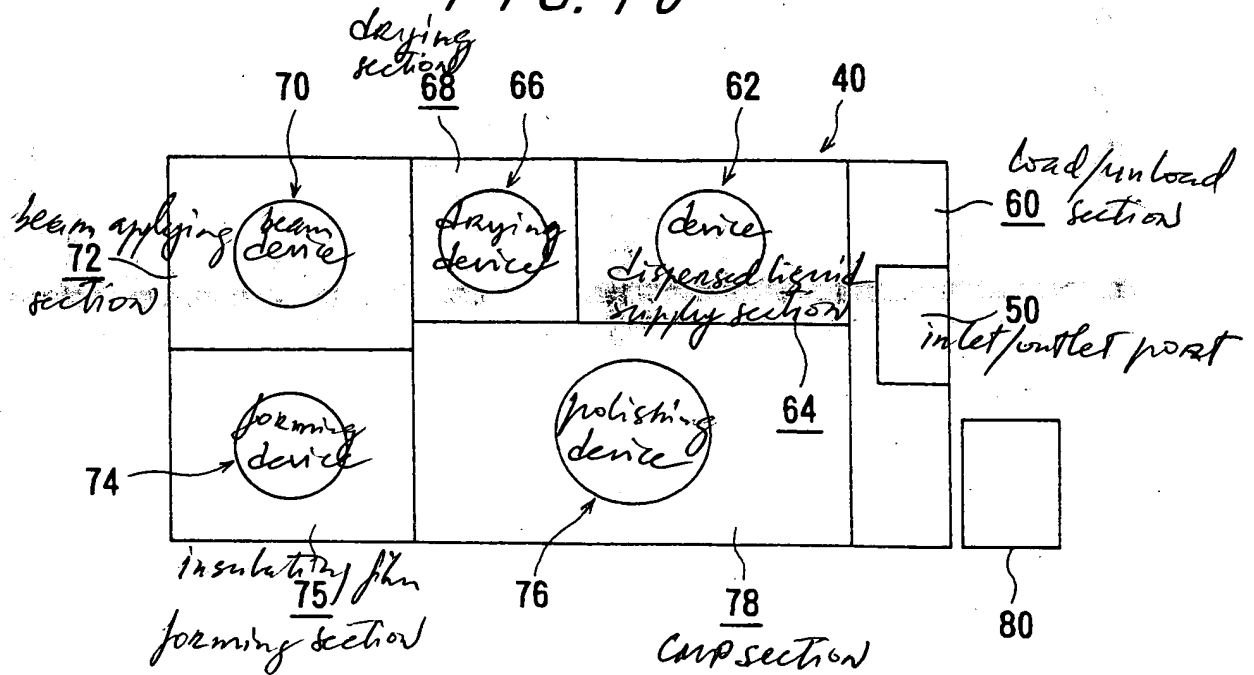 FIG. 10
drying
section
70
68
66
62
40
load/unload
60 section
beam applying
72
section
beam
device
drying
device
device
dispersed liquid
supply section
64
50
inlet/outlet port
forming
device
74
polishing
device
insulating film
75
forming section
76
78
CMP section
80